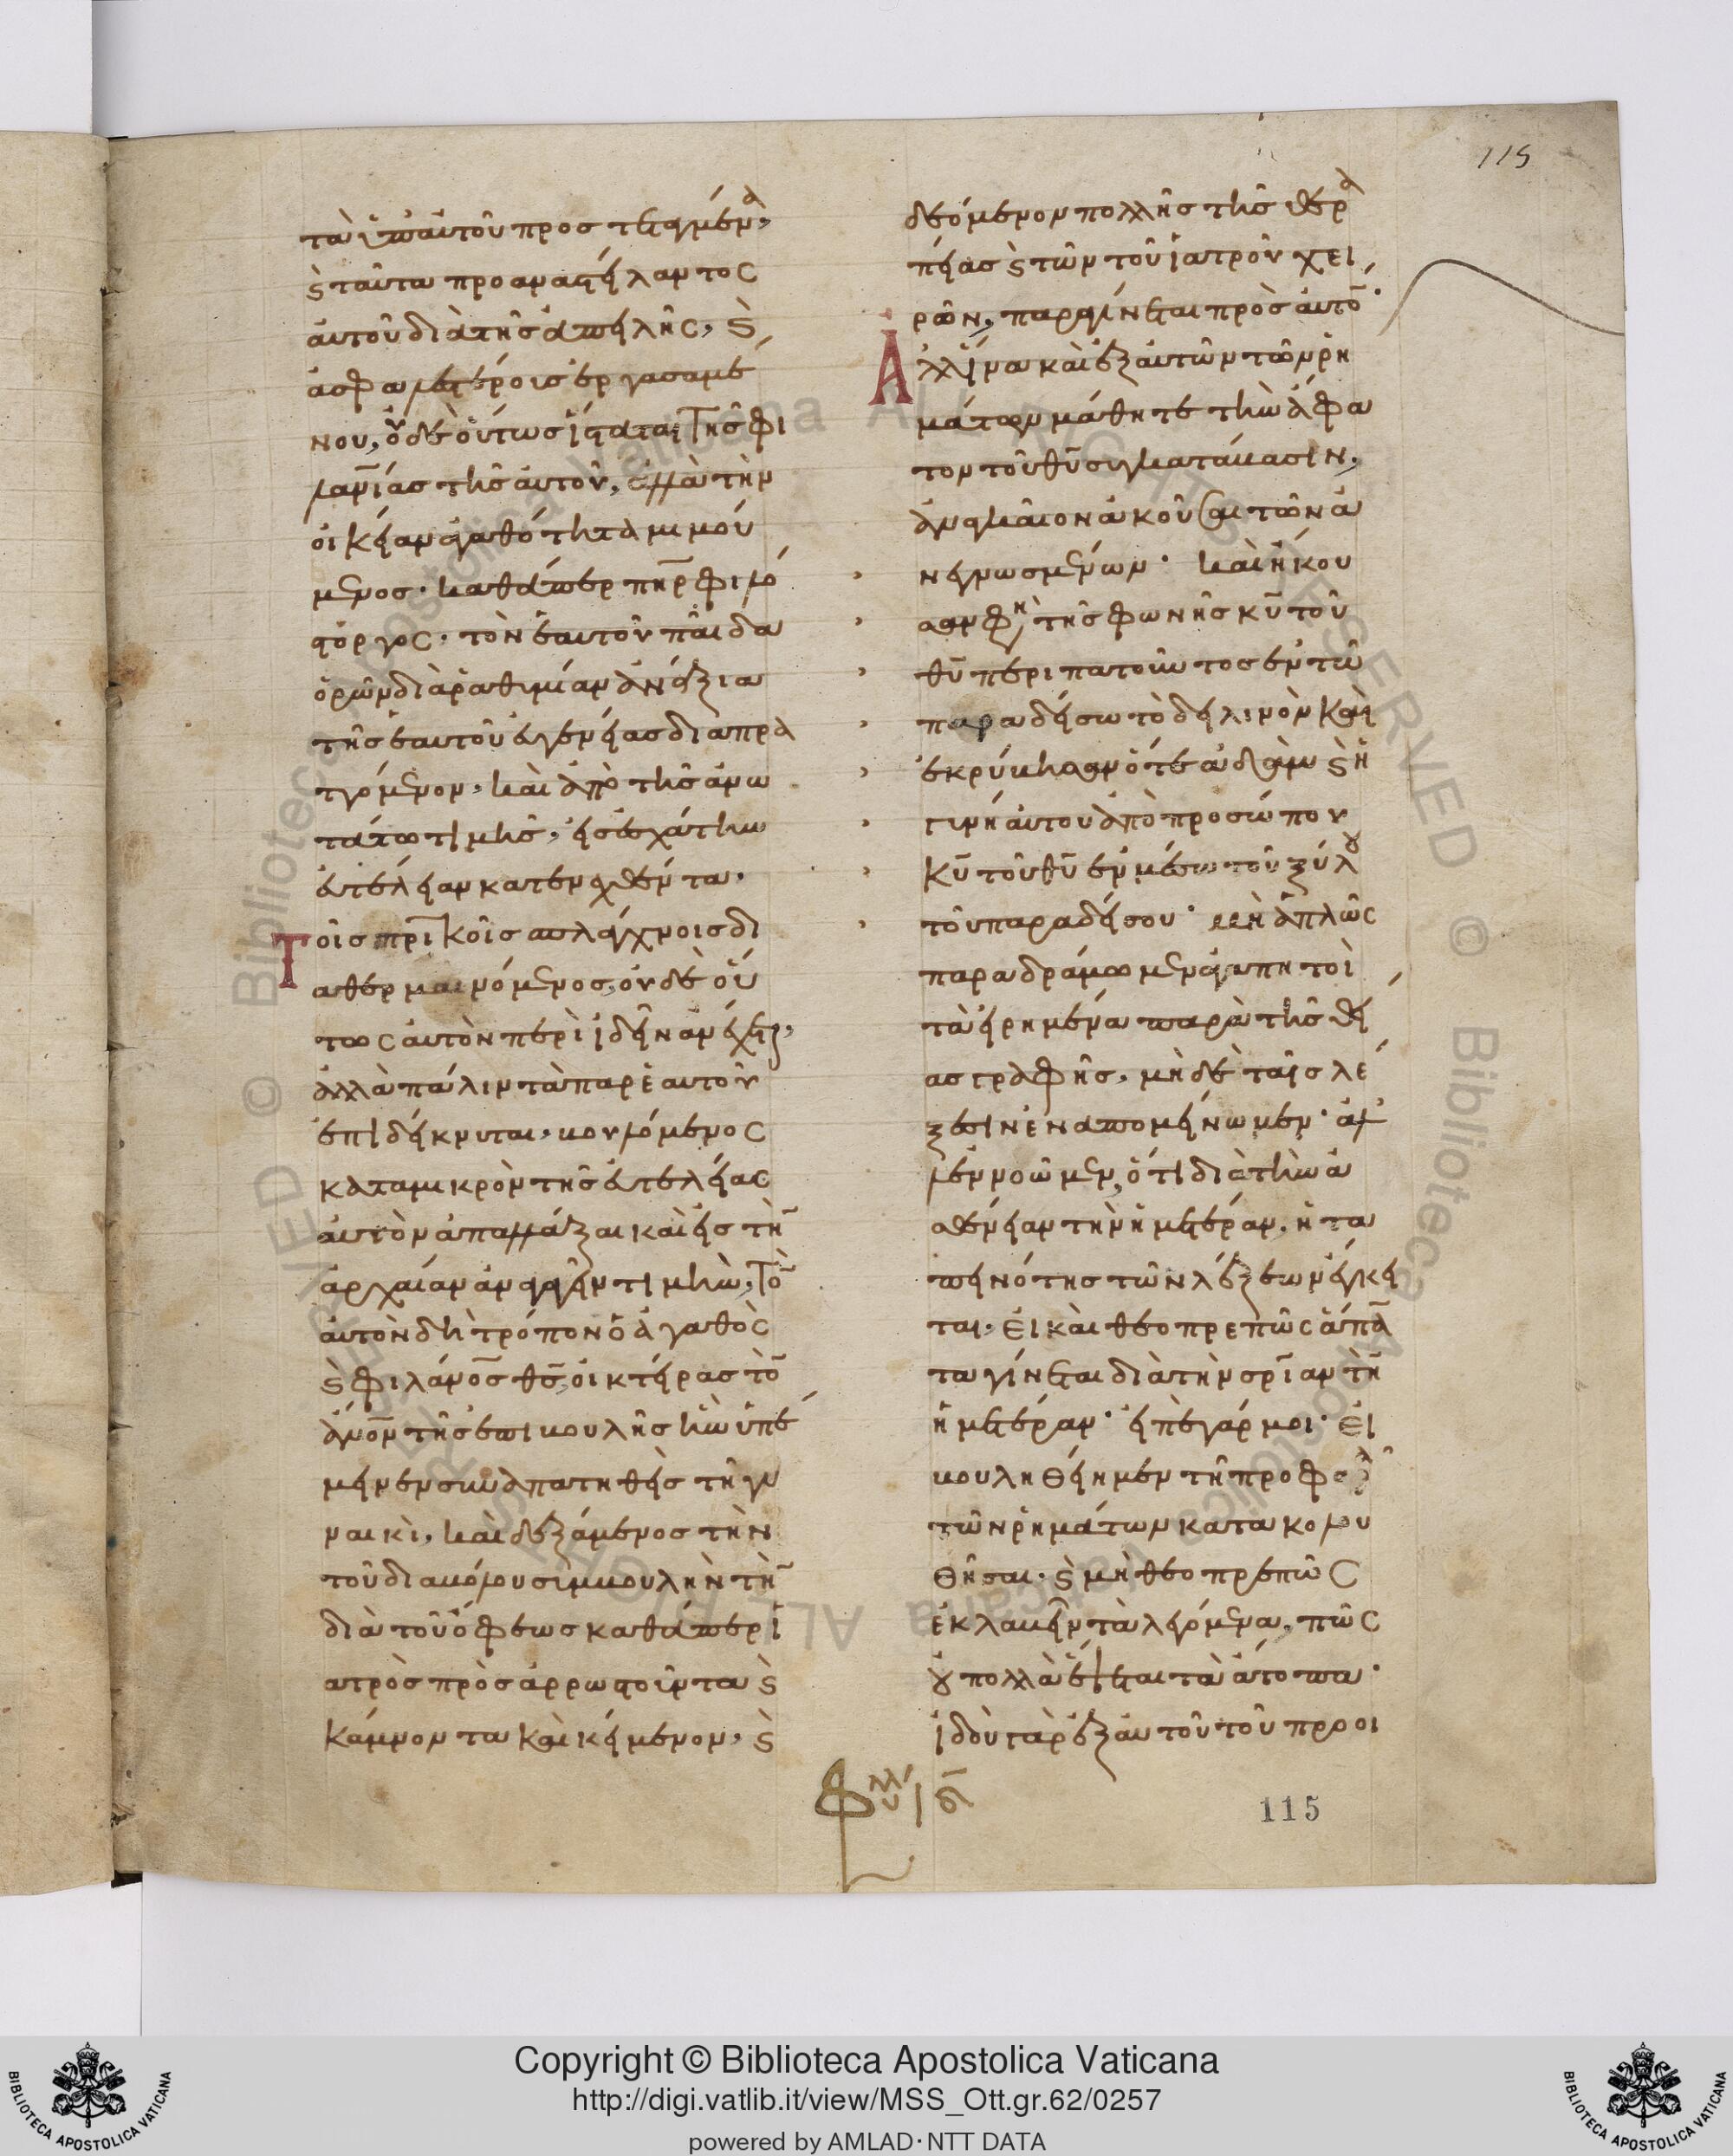 115
τὰ ὑπ αὐτοῦ προστεταγμένα,
ϛ ταῦτα προαναστείλαντος
αὐτοῦ διὰ τῆς ἀπειλῆς, ϛ
ἀσφαλεστέροις ἐργασαμέ
νου, οὐδὲ οὕτως ἵσταται τῆς φι
λανίας τῆς αὐτοῦ, ἀλλὰ τὴν
οἰκείαν ἀγαθότητα μιμού
μενος· καθάπερ πηρ φιλό
στοργος· τὸν ἑαυτοῦ παῖδα
ὁρῶν διὰ ῥαθυμίαν ἀνάξια
τῆς ἑαυτοῦ εὐγενείας διαπρα
τόμενον, καὶ ἀπὸ τῆς ἀνω
τάτω τιμῆς, εἰς ἐσχάτην
εὐτέλειαν κατενεχθέντα·
Τοῖς πρικοῖς σπλάγχνοις δι
αθερμαινόμενος, οὐδὲ οὕ
τως αὐτὸν περιϊδεῖν ἀνέχεται,
ἀλλὰ πάλιν τὰ παρ ἑαυτοῦ
ἐπιδείκνυται, βουλόμενος
κατα μικρὸν τῆς εὐτελείας
αὐτὸν ἀπαλλάξαι καὶ εἰς τὴ
ἀρχαίαν ἀναγαγεῖν τιμὴν, Τὸ
αὐτὸν δὴ τρόπον ὁ ἀγαθὸς
ϛ φιλάνος θς, οἰκτείρας τὸ
ἄνον τῆς ἐπιβουλῆς ἣν ὑπέ
μεινεν συναπατηθεὶς τῇ γυ
ναικὶ, καὶ δεξάμενος τὴν
τοῦ διαβόλου συμβουλὴν τὴ
διὰ τοῦ ὄφεως καθάπερ ἰ
ατρὸς πρὸς ἀρρωστοῦντα ϛ
κάμνοντα καὶ κείμενον, ϛ
δεόμενον πολλῆς τῆς θερα
πείας ϛ τῶν τοῦ ἰατροῦ χει
ρῶν, παραγίνεται πρὸς αὐτό·
Ἀλλ ἵνα καὶ ἐξ αὐτῶν τῶν ῥη
μάτων μάθητε τὴν ἄφα
τον τοῦ θυ συγκατάβασιν,
ἀναγκαῖον ἀκοῦσαι τῶν ἀ
νεγνωσμένων· καὶ ἤκου
σαν φη τῆς φωνῆς κυ τοῦ
θυ περιπατοῦντος ἐν τῶ
παραδείσω τὸ δειλινὸν καὶ
ἐκρύβησαν ὅτε ἀδὰμ ϛ ἡ
γυνὴ αὐτου ἀπὸ προσώπου
κυ τοῦ θυ ἐν μέσω τοῦ ξύλου
τοῦ παραδείσου· μὴ ἁπλῶς
παραδράμωμεν ἀγαπητοὶ
τὰ εἰρημένα παρὰ τῆς θεί
ας γραφῆς, μηδὲ ταῖς λέ
ξεσιν ἐναπομείνωμεν· ἀλ
λ ἐννοῶμεν, ὅτι διὰ τὴν ἀ
σθένειαν τὴν ἡμετέραν, ἡ τα
πεινότης τῶν λέξεων ἔγκει
ται· ει καὶ θεοπρεπῶς ἅπα
τα γίνεται διὰ τὴν σρίαν τὴ
ἡμετέραν· εἰπὲ γάρ μοι· ει
βουληθείημεν τῇ προφορᾶ
τῶν ῥημάτων κατακολου
θῆσαι· ϛ μὴ θεοπρεπῶς
ἐκλαβεῖν τὰ λεγόμενα, πῶς
ου πολλὰ ἕψεται τὰ ἄτοπα·
ἰδοὺ γὰρ ἐξ αὐτοῦ τοῦ προοι
115
Copyright © Biblioteca Apostolica Vaticana
http://digi.vatlib.it/view/MSS_Ott.gr.62/0257
powered by AMLAD·NTT DATA
BIBLIOTECA APOSTOLICA VATICANA
BIBLIOTECA APOSTOLICA VATICANA